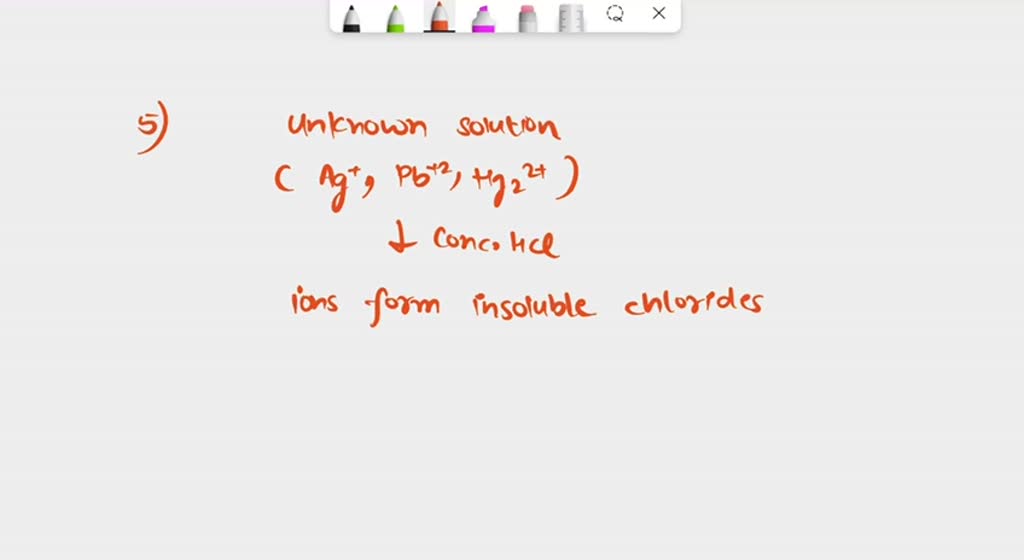 5) Unknown solution
( Ag⁺, Pb⁺², Hg₂²⁺ )
↓ Conc. HCl
ions form insoluble chlorides